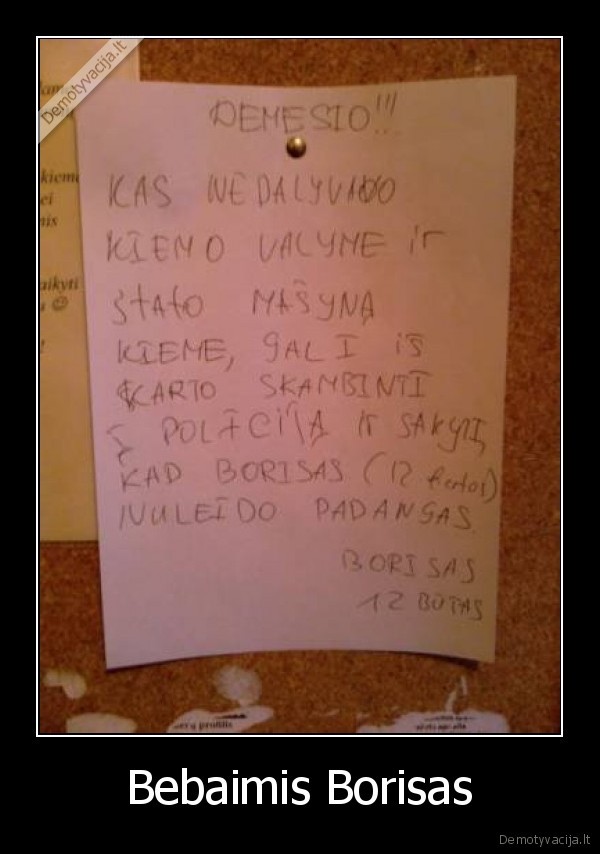 Demotyvacija.lt
kiem
ei
nis
aikyti
DEMESIO!!!
KAS NEDALYVAVO
KIEMO VALYME ir
stato MAŠYNĄ
KIEME, GALI iš
KARTO SKAMBINTI
Į POLICIJĄ IR SAKYTI,
KAD BORISAS (12 
NULEIDO PADANGAS
BORISAS
12 BUTAS
profilis
Bebaimis Borisas
Demotyvacija.lt